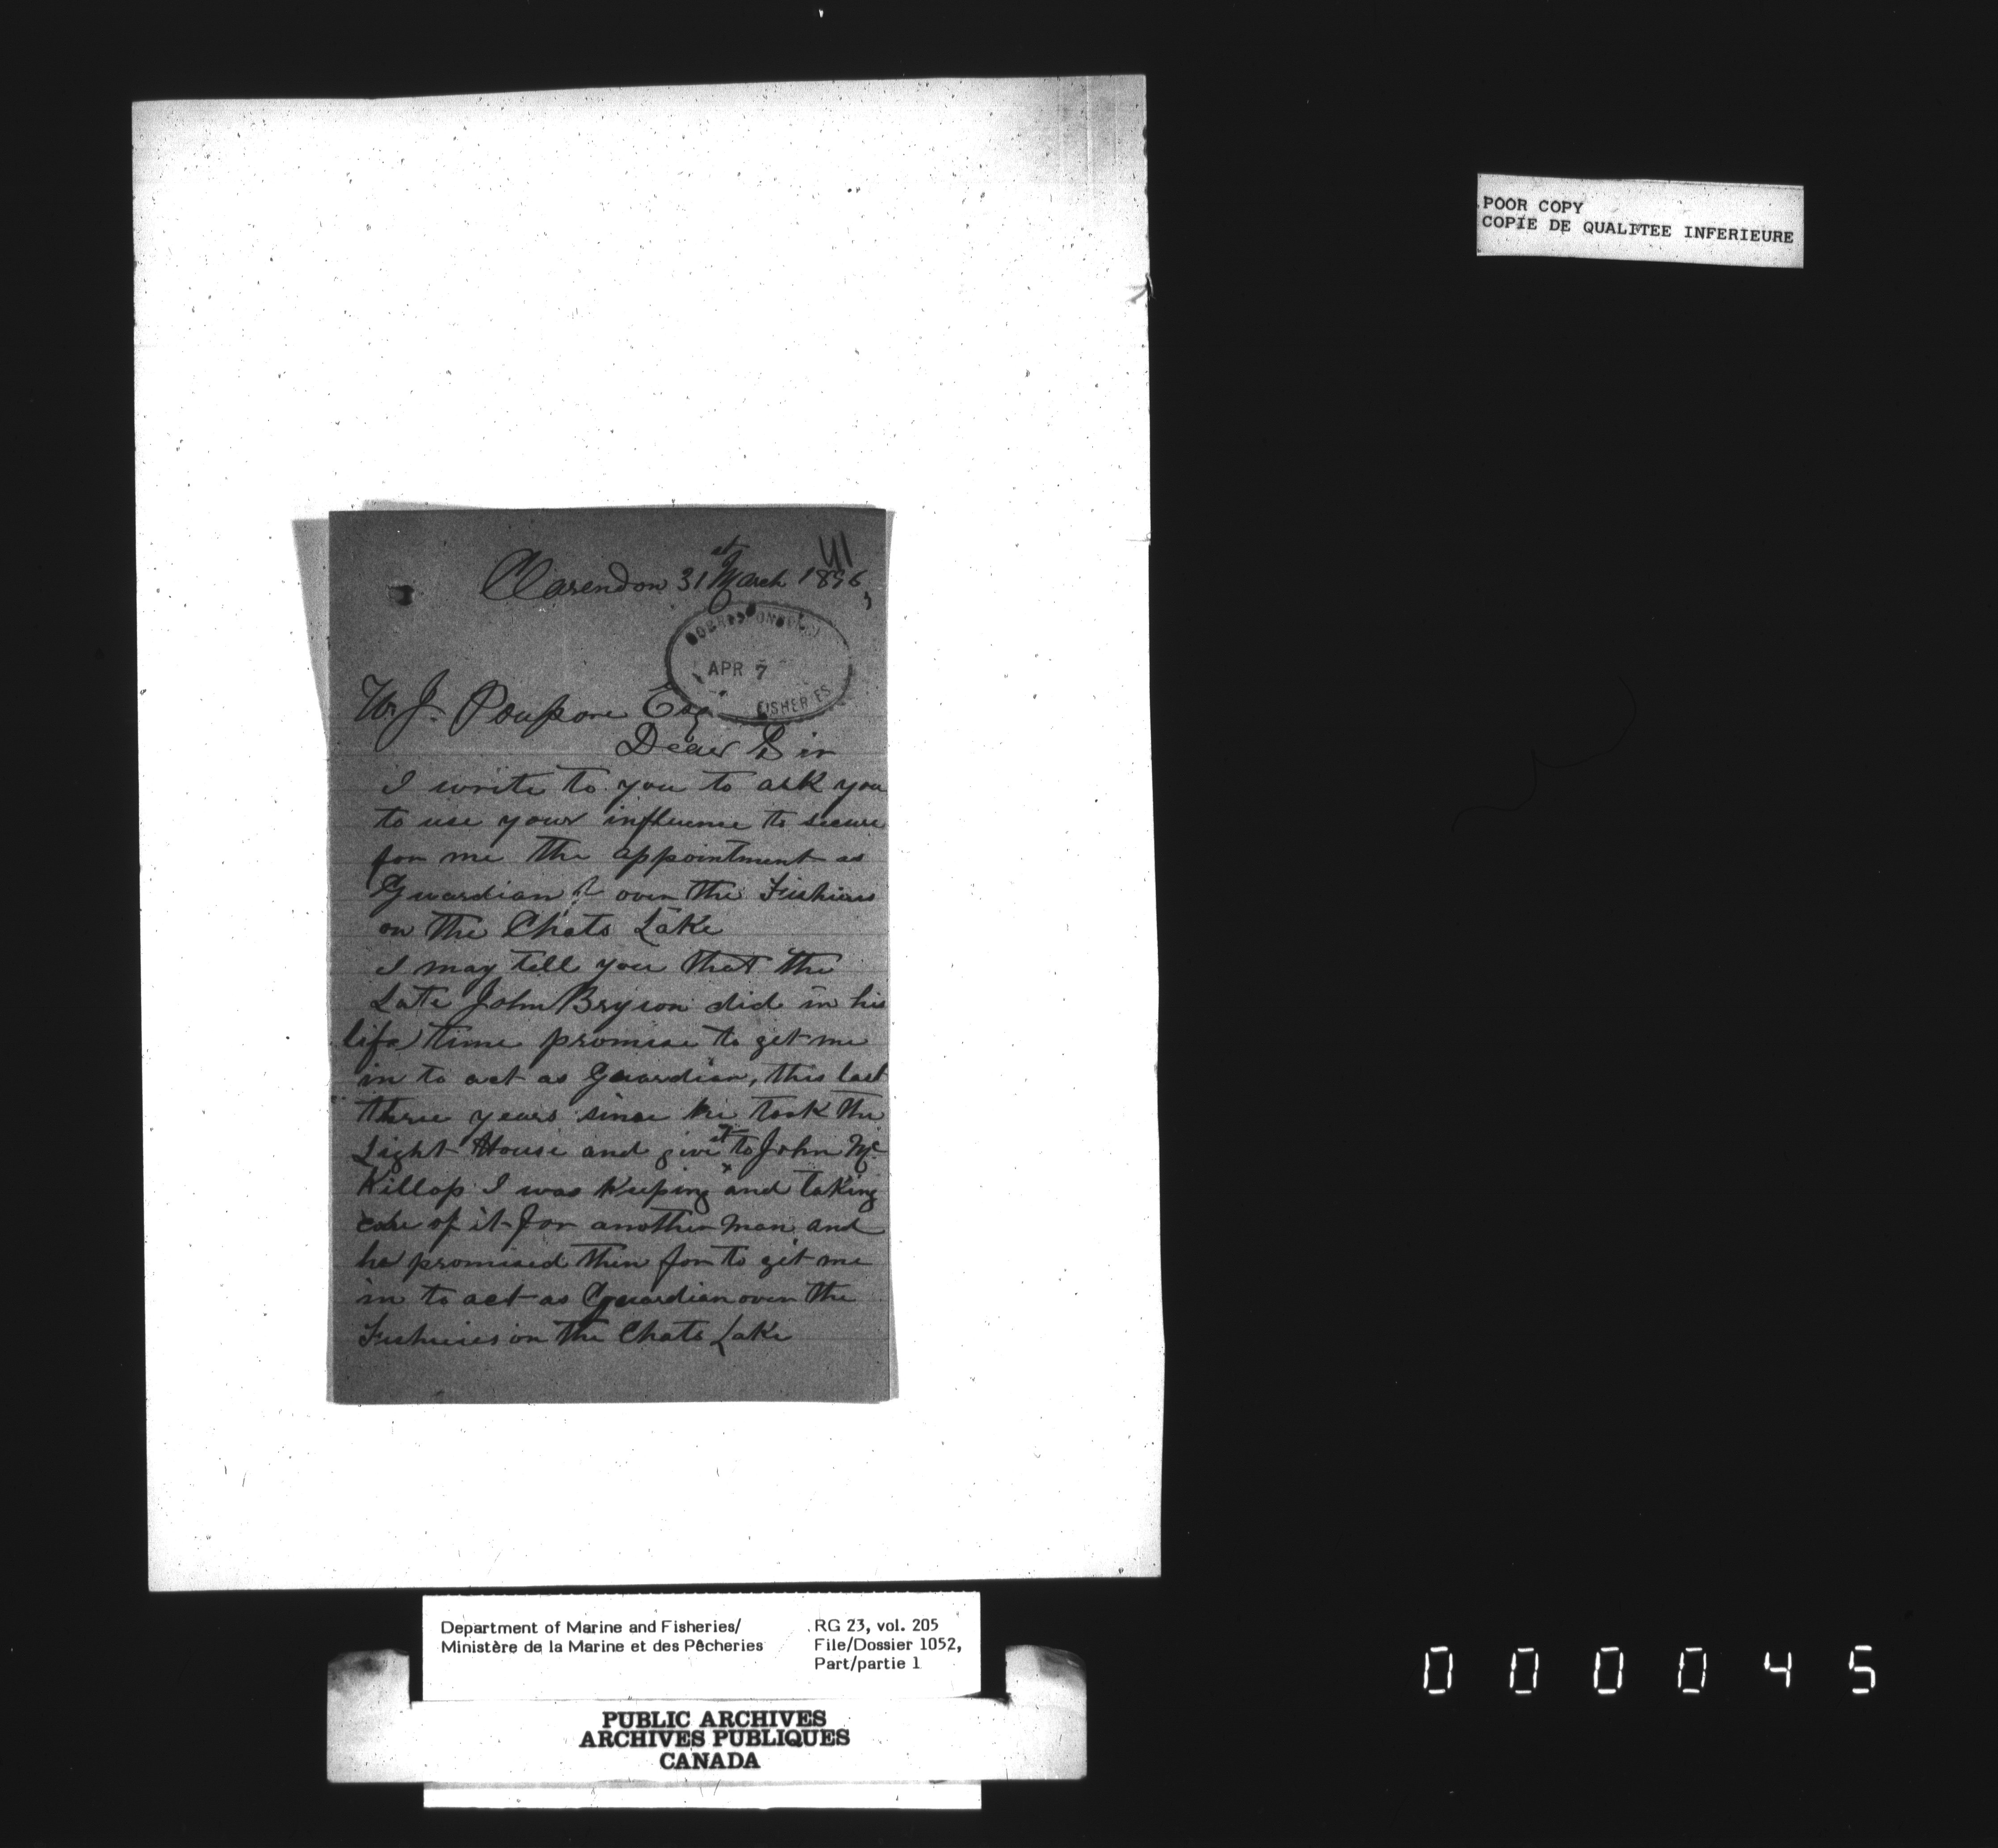 POOR COPY
COPIE DE QUALITEE INFERIEURE
41
Clarendon 31st March 1896,
APR 7
FISHERIES
W. J. Poupore Esq
Dear Sir
I write to you to ask you
to use your influence to secure
for me the appointment as
Guardian over the Fishries
on the Chats Lake
I may tell you that the
Late John Bryson did in his
life time promise to get me
in to act as Guardian, this last
three years since he took the
Light House and give it to John Mc
Killop I was Keeping and taking
care of it for another man and
he promised then for to git me
in to act as Guardian over the
Fishries on the Chats Lake
Department of Marine and Fisheries/
Ministère de la Marine et des Pêcheries
RG 23, vol. 205
File/Dossier 1052,
Part/partie 1
PUBLIC ARCHIVES
ARCHIVES PUBLIQUES
CANADA
000045